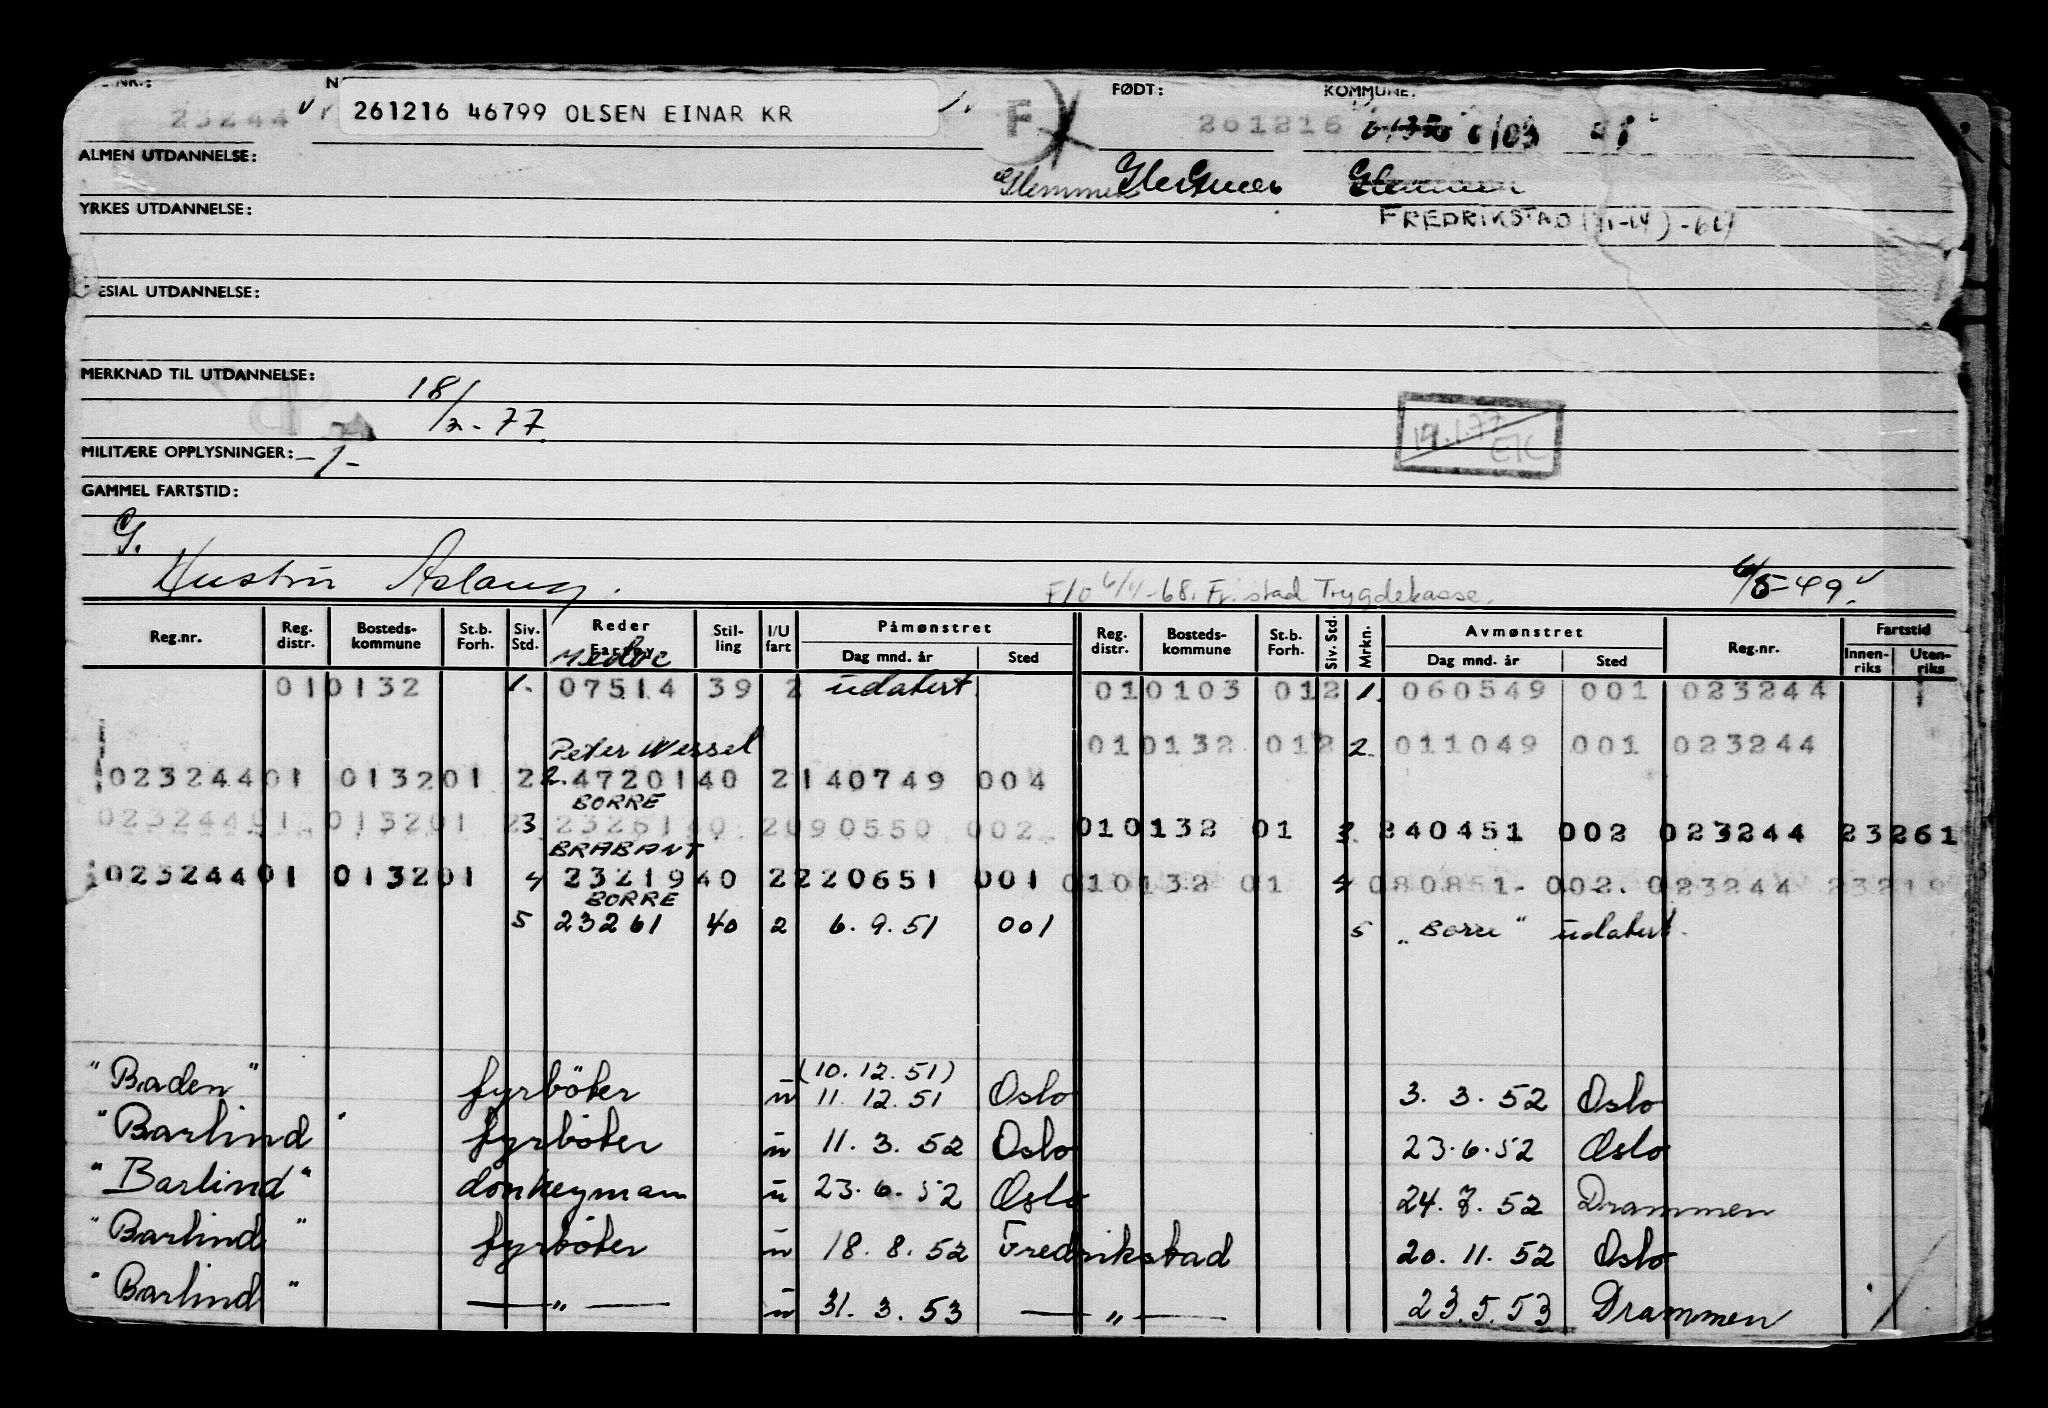 NR.: N FØDT: KOMMUNE:
23244 261216 46799 OLSEN EINAR KR 1. F 261216 0103
ALMEN UTDANNELSE: Glemmen Glemmen Glemmen
YRKES UTDANNELSE: FREDRIKSTAD
ESIAL UTDANNELSE:
MERKNAD TIL UTDANNELSE: 18/2-77
19.1.77 EK
MILITÆRE OPPLYSNINGER: -1-
GAMMEL FARTSTID:
G.
Hustru Aslaug. F/O 6/11-68. Fr.stad Trygdekasse. 6/5-49.
Reg.nr. Reg. distr. Bosteds-kommune St.b. Forh. Siv. Std. Reder Fartøy Stil-ling I/U fart Påmønstret Reg. distr. Bosteds-kommune St.b. Forh. Siv. Std. Mrkn. Avmønstret Reg.nr. Fartstid
Dag mnd. år Sted Dag mnd. år Sted Innen-riks Uten-riks
Medoc
01 0132 1. 07514 39 2 udatert 01 0103 01 2 1. 060549 001 023244
Peter Wessel 01 0132 01 2 2. 011049 001 023244
023244 01 0132 01 2 2. 47201 40 2 140749 004
BORRE
023244 01 0132 01 2 3 23261 40 2 090550 002 01 0132 01 3. 240451 002 023244 23261
BRABANT
023244 01 0132 01 4 23219 40 2 220651 001 01 0132 01 4 080851 002 023244 23219
BORRE
5 23261 40 2 6.9.51 001 5 "Borre" udatert.
(10.12.51)
"Baden" fyrböter u 11.12.51 Oslo 3.3.52 Oslo
"Barlind" fyrböter u 11.3.52 Oslo 23.6.52 Oslo
"Barlind" donkeyman u 23.6.52 Oslo 24.7.52 Drammen
"Barlind" fyrböter u 18.8.52 Fredrikstad 20.11.52 Oslo
"Barlind" — " — u 31.3.53 — " — 23.5.53 Drammen